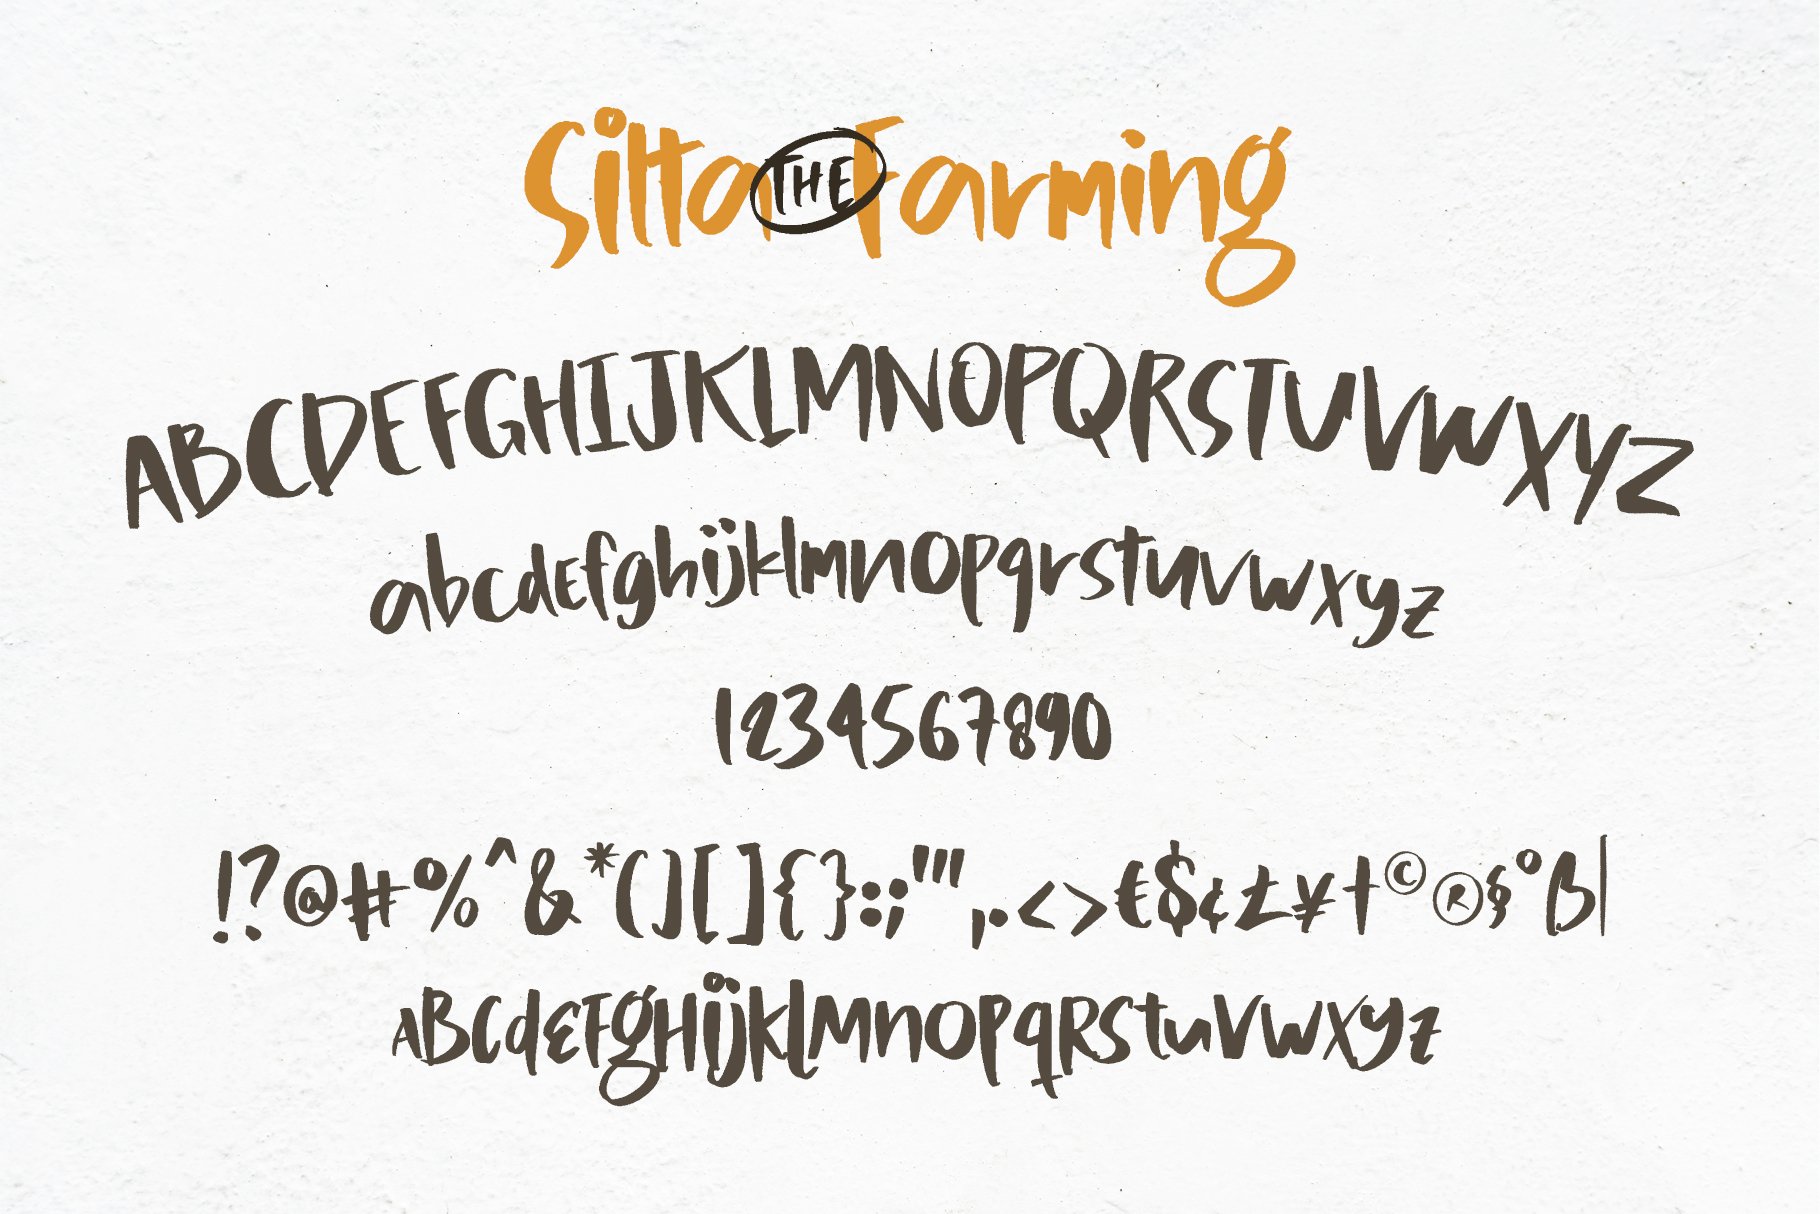 Silta THE Farming
ABCDEFGHIJKLMNOPQRSTUVWXYZ
abcdefghijklmnopqrstuvwxyz
1234567890
!?@#%^&*()[]{}:;"',.<>€$¢£¥†©®§°ß|
ABCdEFgHijKlMnOpqRStuVwXyz